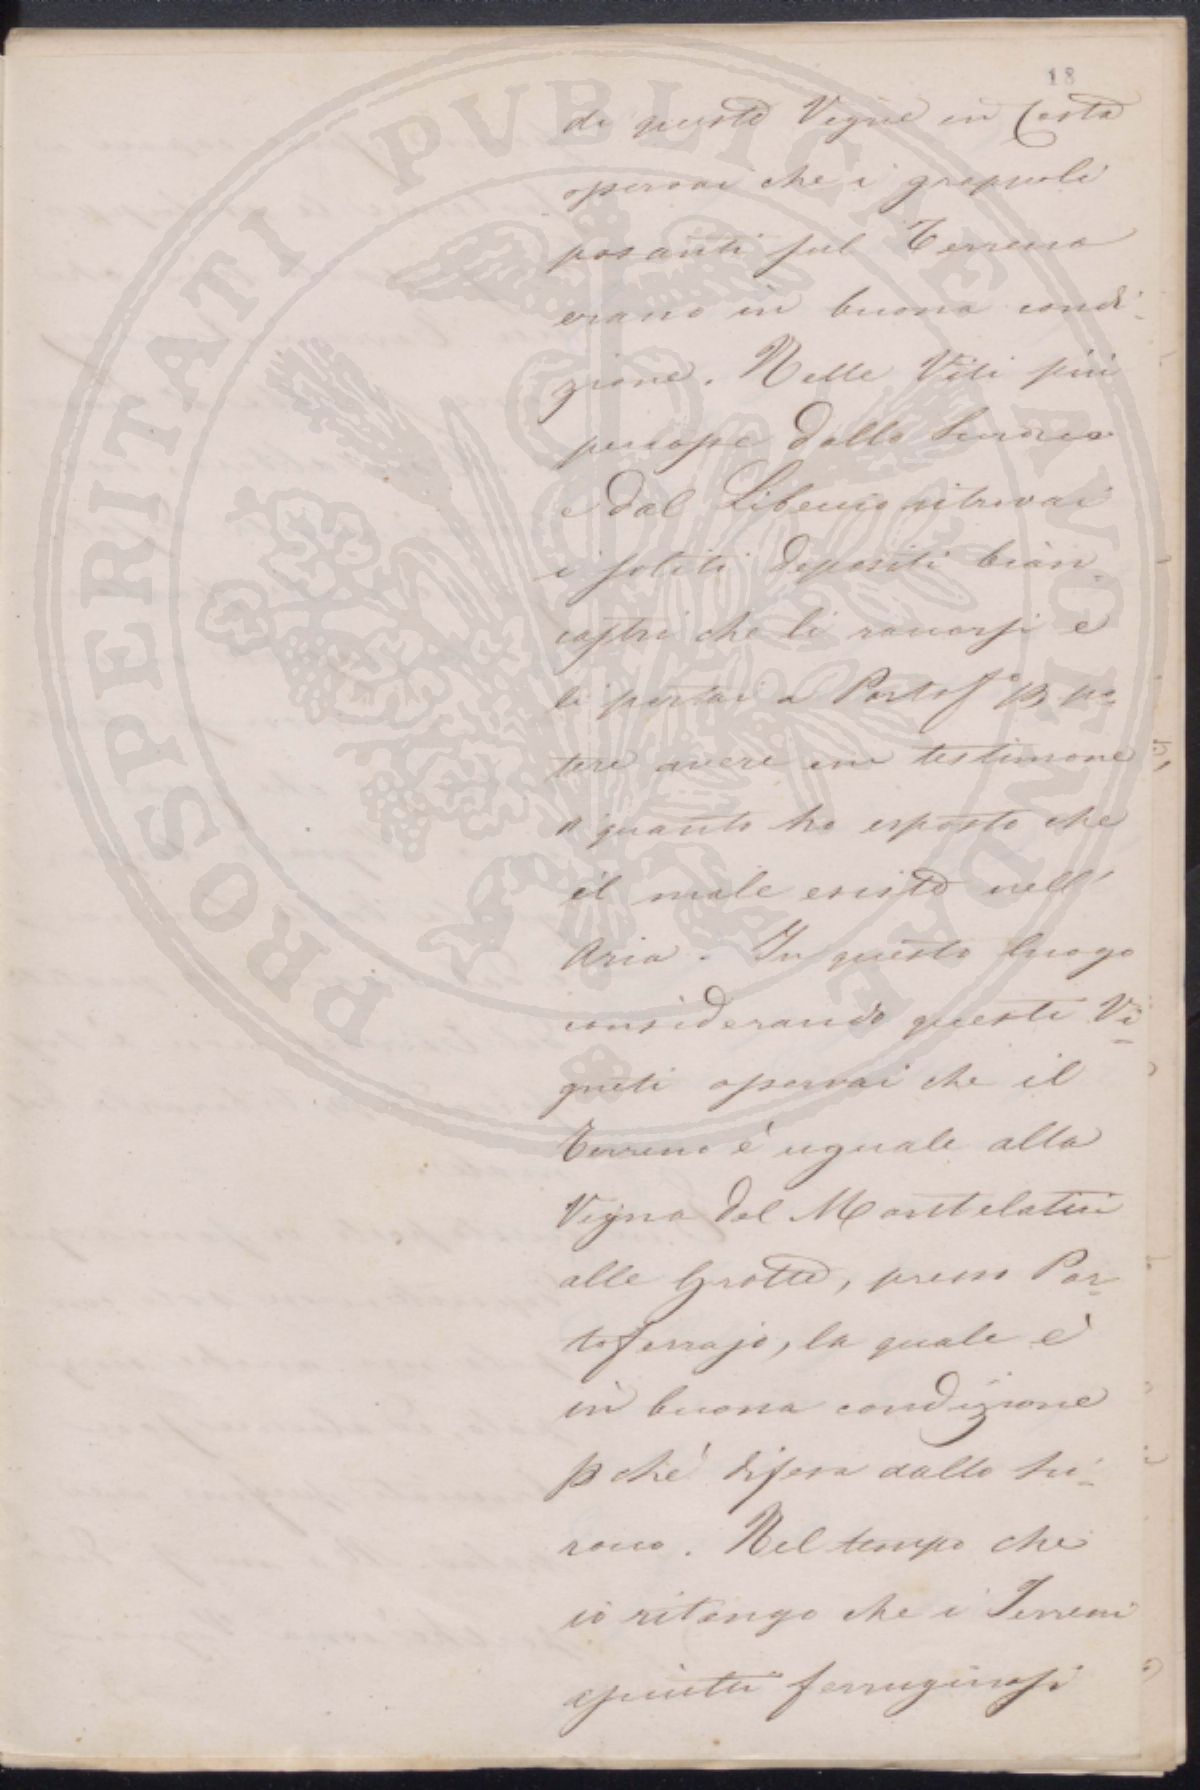 18
di queste Vigne in Costa
osservai che i grappoli
posanti sul Terreno
erano in buona condi-
zione. Nelle Viti più
percosse dallo Scirocco
e dal Libeccio ritrovai
i soliti depositi bian-
castri che li raccorsi e
li portai a Portof.º p po-
tere avere un testimone
a quanto ho esposto che
il male esiste nell'
Aria. In questo luogo
considerando questi Vi-
gneti osservai che il
Terreno è uguale alla
Vigna del Mantelatini
alle Grotte, presso Por-
toferrajo, la quale è
in buona condizione
pchè difesa dallo Sci-
rocco. Nel tempo che
io ritengo che i Terreni
ferruginosi
PROSPERITATI PVBLICAE AVGENDAE